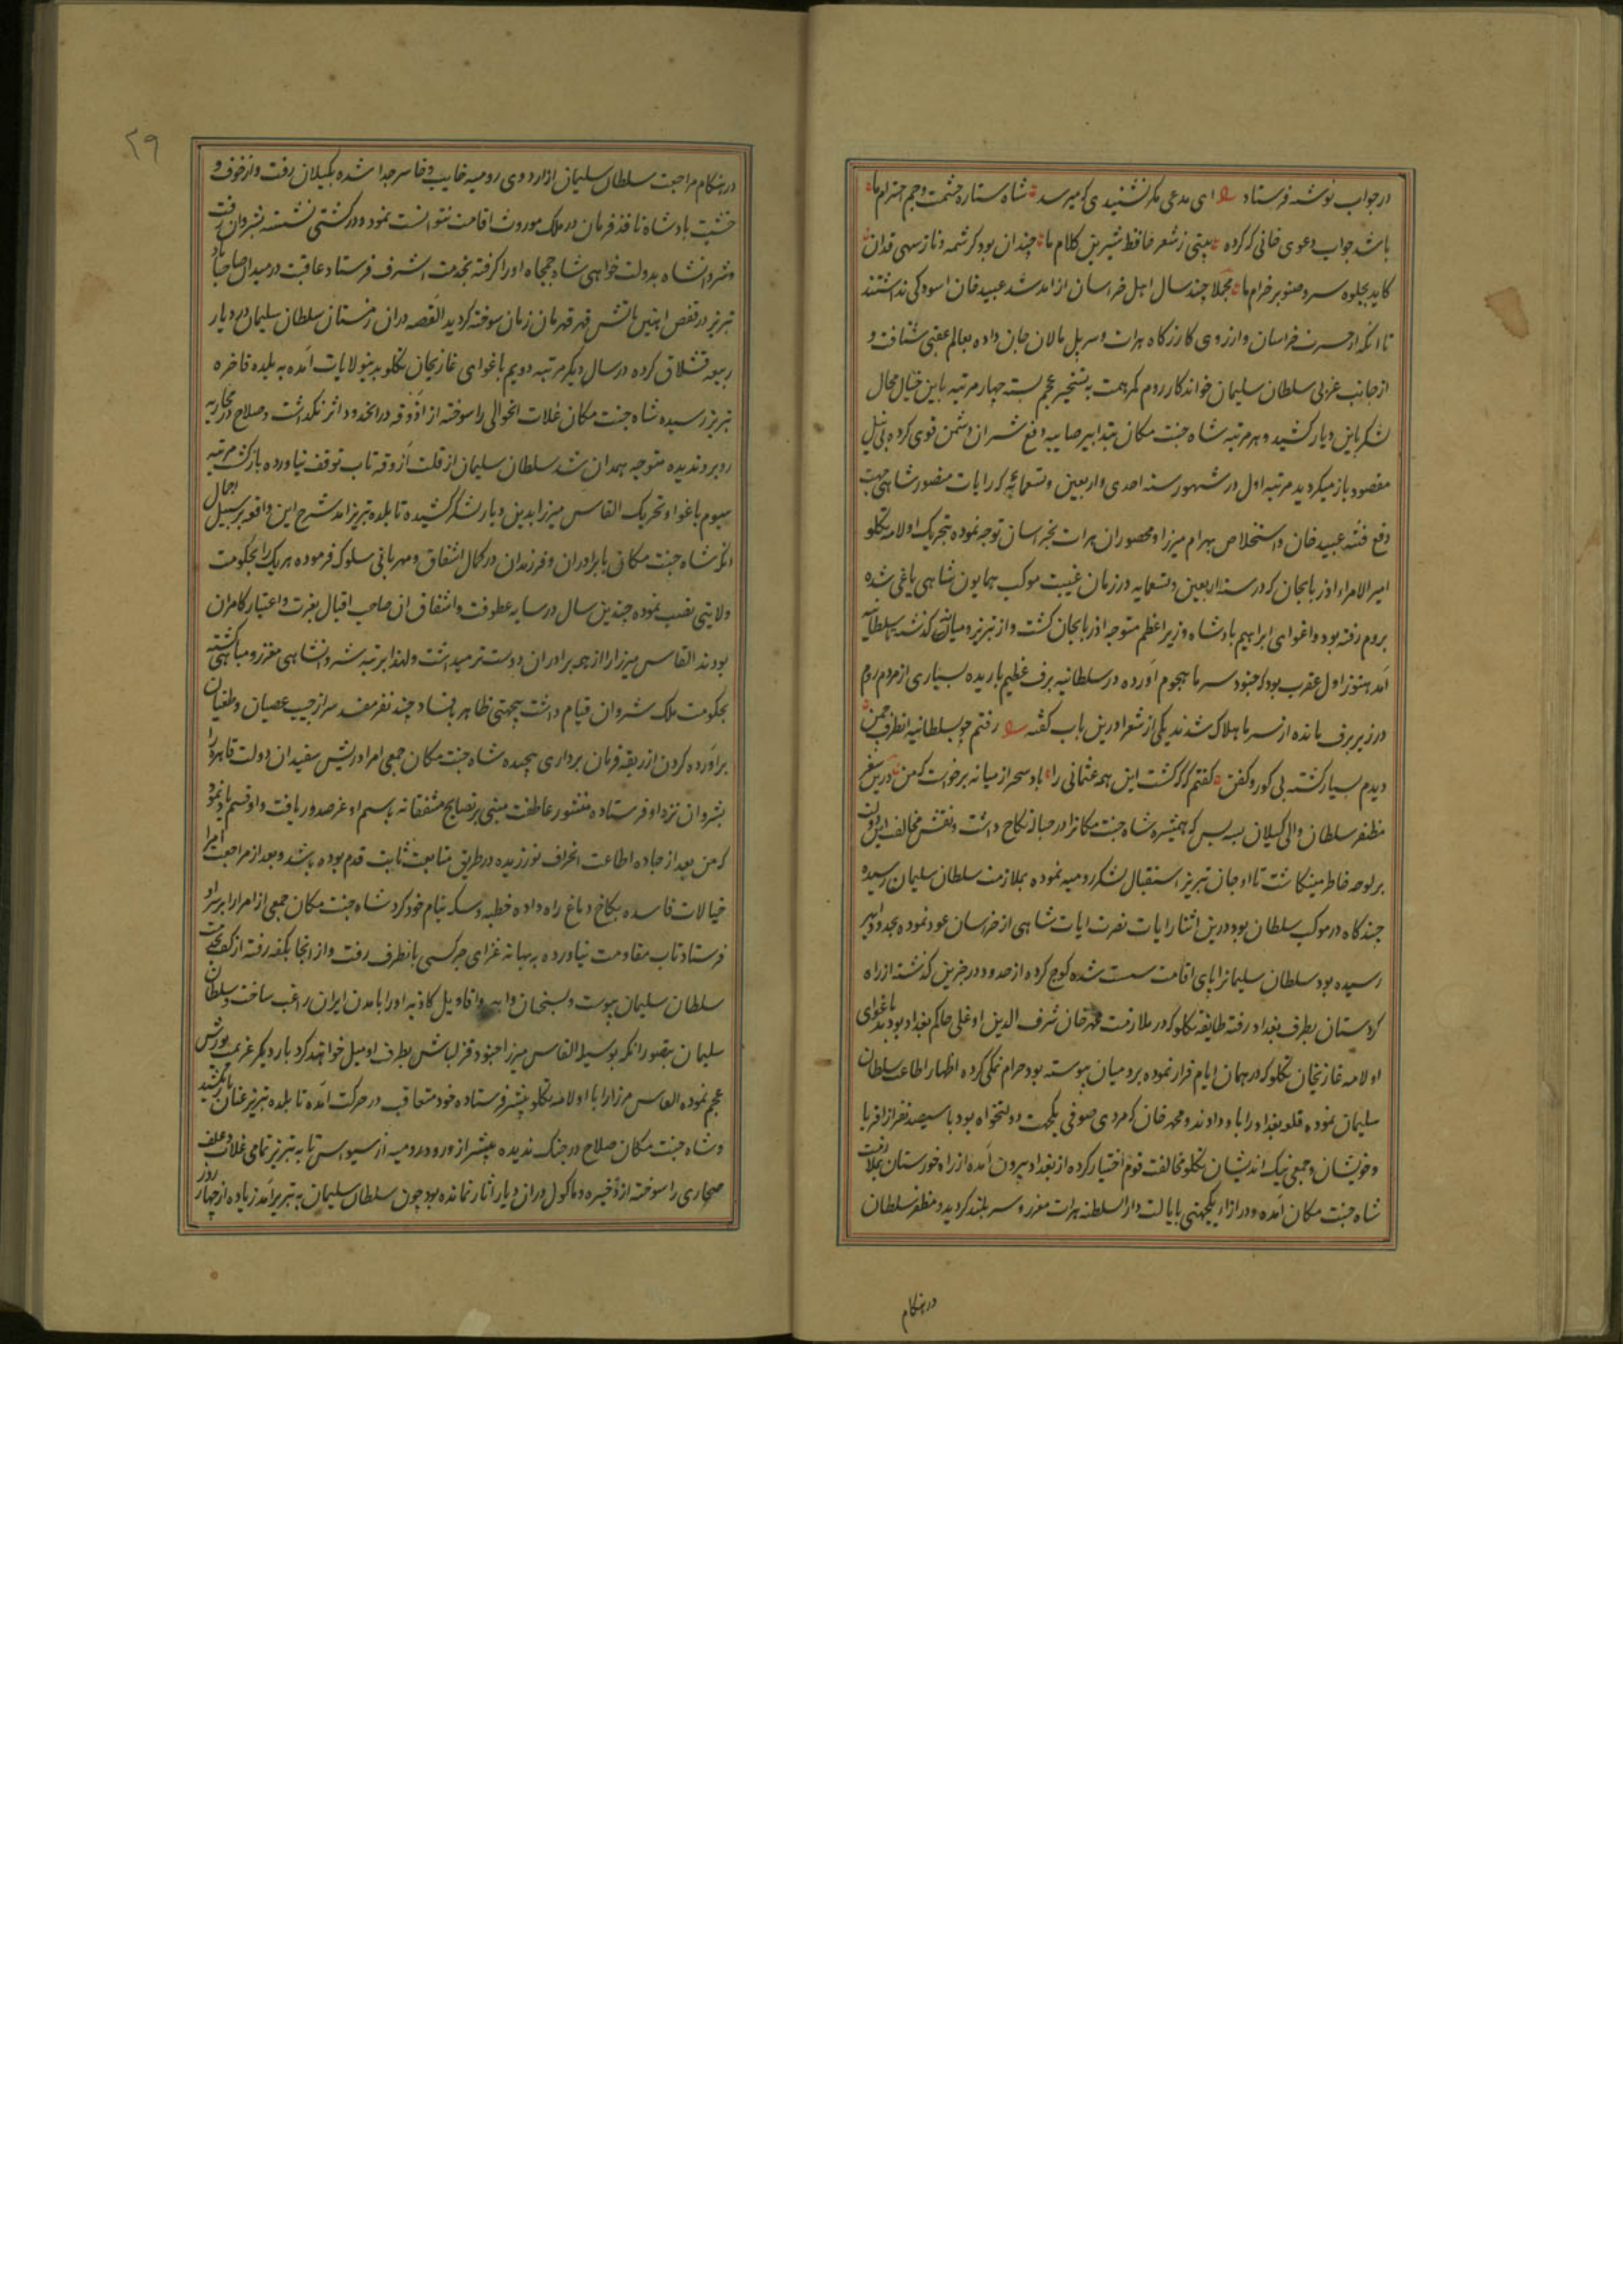 در جواب نوشته فرستاد ای مدعی مکر نشنیدی که میرسد شاه ستاره حشمت و جم احترام ما
باشد جواب دعوی خانی که کرده بیتی ز شعر حافظ شیرین کلام ما چندان بود کرشمه و ناز سهی قدان
کاید بجلوه سرو صنوبر خرام ما مجملا چند سال اهل خراسان از امد شد عبید خان اسودکی نداشتند
تا انکه از حسرت خراسان و ارزوی کازرکاه هرات و سر پل مالان جان داده بعالم عقبی شتافت و
از جانب غربی سلطان سلیمان خواندکار روم کمر همت به تسخیر عجم بسته چهار مرتبه باین خیال محال
لشکر باین دیار کشید و هر مرتبه شاه جنت مکان بتدابیر صایبه دفع شر ان دشمن قوی کرده بی نیل
مقصود باز میکردید مرتبه اول در شهور سنه احدی و اربعین و تسعمائه که رایات منصور شاهی جهت
دفع فتنه عبید خان و استخلاص بهرام میرزا و محصوران هرات بخراسان توجه نموده بتحریک اولامه تکلو
امیر الامراء اذربایجان که در سنه اربعین و تسعمایه در زمان غیبت موکب همایون شاهی یاغی شده
بروم رفته بود و اغوای ابراهیم پادشاه وزیر اعظم متوجه اذربایجان کشت و از تبریز و میانه کذشته بسلطانیه
آمد هنوز اول عقرب بود که جنود سرما هجوم آورده در سلطانیه برف عظیم باریده بسیاری از مردم روم
در زیر برف مانده از سرما هلاک شدند یکی از شعرا درین باب کفته رفتم چو بسلطانیه انطرف چمن
دیدم بسیار کشته بی کور و کفن کفتم که که کشت این همه عثمانی را باد سحر از میانه برخواست که من درین سفر
مظفر سلطان والی کیلان بیه پس که همشیره شاه جنت مکانرا در حباله نکاح داشت و نقش مخالف این دولت
بر لوحه خاطر مینکاشت تا اوجان تبریز استقبال لشکر رومیه نموده بملازمت سلطان سلیمان رسیده
چند کاه در موکب سلطان بود درین اثنا رایات نصرت ایات شاهی از خراسان عود نموده بحدود ابهر
رسیده بود سلطان سلیمانرا پای اقامت سست شده کوچ کرده از حدود درجزین کذشته از راه
کردستان بطرف بغداد رفته طایفه تکلو که در ملازمت محمد خان شرف الدین اوغلی حاکم بغداد بودند باغوای
اولامه غازیخان تکلو که در همان ایام فرار نموده برومیان پیوسته بود حرام نمکی کرده اظهار اطاعت سلطان
سلیمان نموده قلعه بغداد را باو دادند و محمد خان که مردی صوفی یکجهت دولتخواه بود با سیصد نفر از اقربا
و خویشان و جمعی نیک اندیشان تکلو مخالفت قوم اختیار کرده از بغداد بیرون آمده از راه خورستان بملازمت
شاه جنت مکان آمده و در ازاء یکجهتی بایالت دار السلطنه هرات معزز و سر بلند کردید و مظفر سلطان
در هنکام
۲۹
در هنکام مراجعت سلطان سلیمان از اردوی رومیه خایب و خاسر جدا شده بکیلان رفت و از خوف و
خشیت پادشاه نافذ فرمان در ملک موروث اقامت نتوانست نمود و در کشتی نشسته بشروان رفت
و شروانشاه بدولت خواهی شاه جمجاه او را کرفته بخدمت اشرف فرستاد عاقبت در میدان صاحباباد
تبریز در قفص اهنین باتش قهر قهرمان زمان سوخته کردید القصه دران زمستان سلطان سلیمان در دیار
ربیعه قشلاق کرده در سال دیکر مرتبه دویم باغوای غازیخان تکلو بدینولایات آمده به بلده فاخره
تبریز رسیده شاه جنت مکان غلات انحوالی را سوخته از آذوقه درانحدود اثر نکذاشت و صلاح در محاربه
روبرو ندیده متوجه همدان شد سلطان سلیمان از قلت آزوقه تاب توقف نیاورده بازکشت مرتبه
سیوم باغوا و تحریک القاس میرزا بدین دیار لشکر کشیده تا بلده تبریز امد شرح این واقعه بر سبیل اجمال
انکه شاه جنت مکان با برادران و فرزندان در کمال اشفاق و مهربانی سلوک فرموده هر یک را بحکومت
ولایتی نصب نموده چندین سال در سایه عطوفت و اشفاق ان صاحب اقبال بعزت و اعتبار کامران
بودند القاس میرزا را از همه برادران دوست تر میداشت و لهذا بمرتبه شروانشاهی معزز و مباهی کشته
بحکومت ملک شروان قیام داشت بیجهتی ظاهر بافساد چند نفر مفسد سر از جیب عصیان و طغیان
برآورده کردن از ربقه فرمان برداری پیچیده شاه جنت مکان جمعی امرا و ریش سفیدان دولت قاهره را
بشروان نزد او فرستاده منشور عاطفت مبنی بر نصایح مشفقانه باسم او عز صدور یافت و او قسم یاد نمود
که من بعد از جاده اطاعت انحراف نورزیده در طریق متابعت ثابت قدم بوده باشد و بعد از مراجعت امرا
خیالات فاسده بکاخ دماغ راه داده خطبه و سکه بنام خود کرد شاه جنت مکان جمعی از امرا را بر سر او
فرستاد تاب مقاومت نیاورده به بهانه غزای چرکسی بانطرف رفت و از انجا بکفه رفته از کفه بخدمت
سلطان سلیمان پیوست و بسخنان واهیه و اقاویل کاذبه او را بامدن ایران راغب ساخت و سلطان
سلیمان بتصور انکه بوسیله القاس میرزا جنود قزلباش بطرف او میل خواهند کرد بار دیکر عزیمت یورش
عجم نموده القاس مرزا را با اولامه تکلو پیشتر فرستاده خود متعاقب در حرکت آمده تا بلده تبریز عنان باز نکشید
و شاه جنت مکان صلاح در جنک ندیده پیشتر از ورود رومیه از سیواس تا به تبریز تمامی غلات و علف
صحاری را سوخته از ذخیره و ماکول دران دیار اثار نمانده بود چون سلطان سلیمان به تبریز آمد زیاده از چهار روز